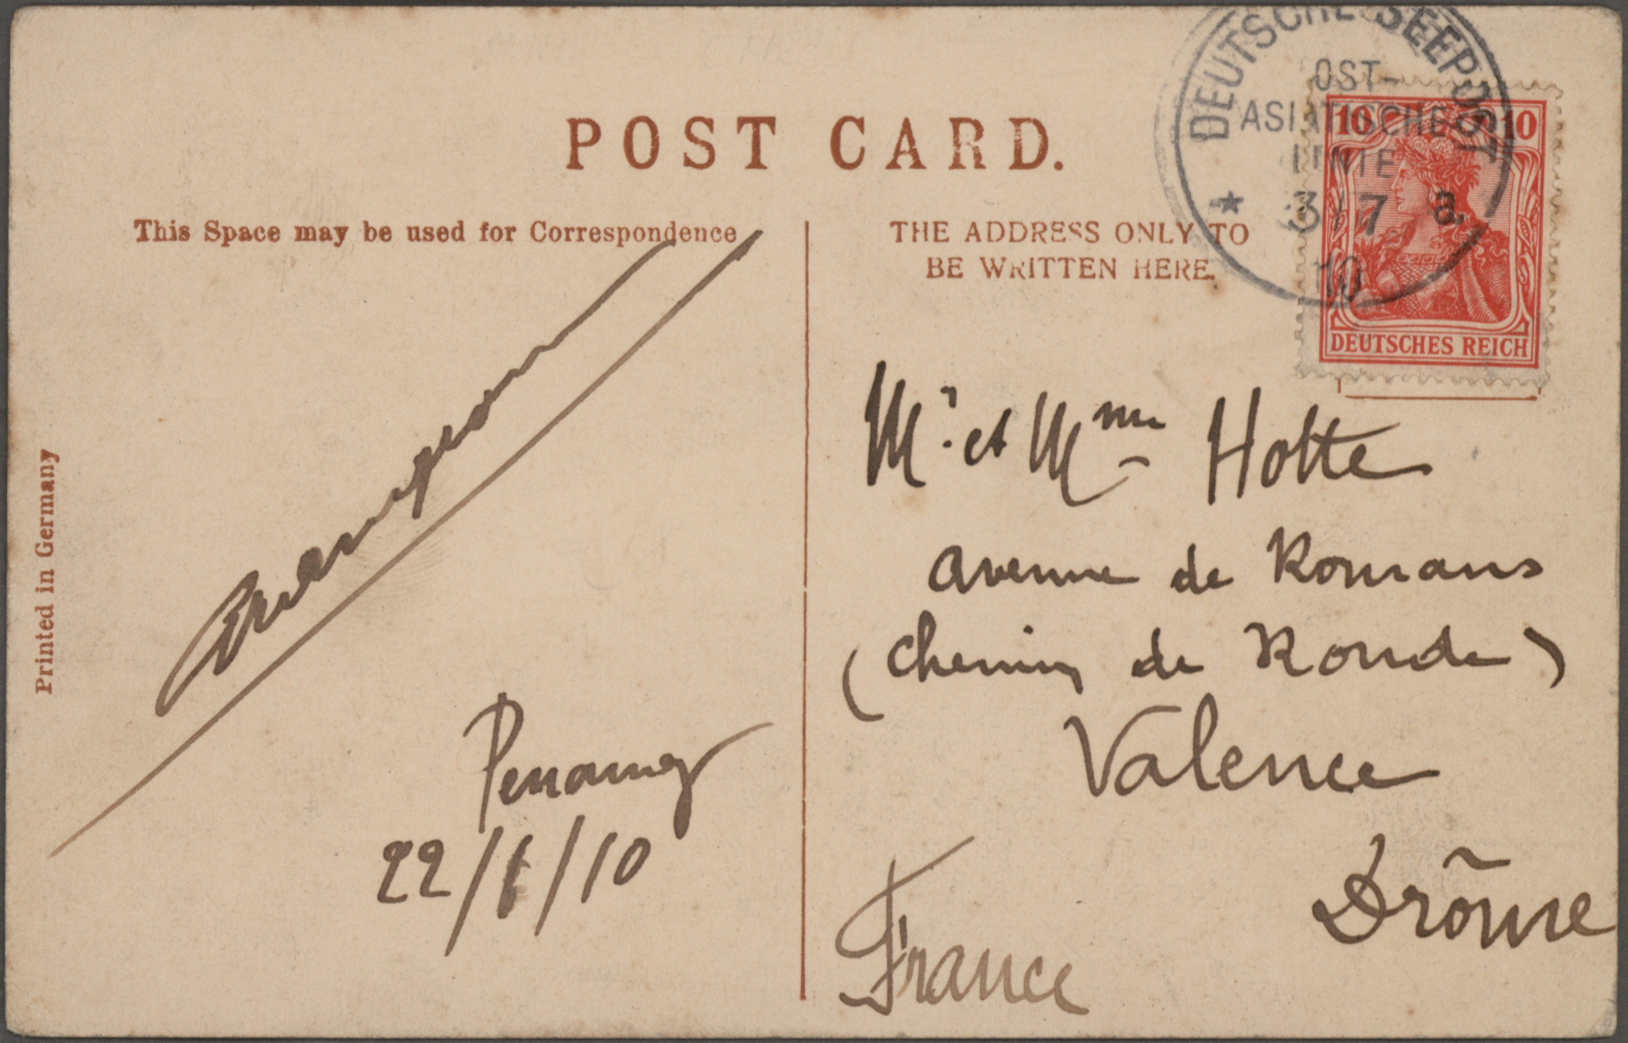 POST CARD.
This Space may be used for Correspondence
THE ADDRESS ONLY TO
BE WRITTEN HERE.
Printed in Germany
DEUTSCHE SEEPOST
OST-
ASIATISCHE
LINIE
3/7 a
10
10 10
DEUTSCHES REICH
Penang
22/6/10
Mr. et Mme Holte
avenue de Romans
(Chemin de Ronde)
Valence
Drôme
France